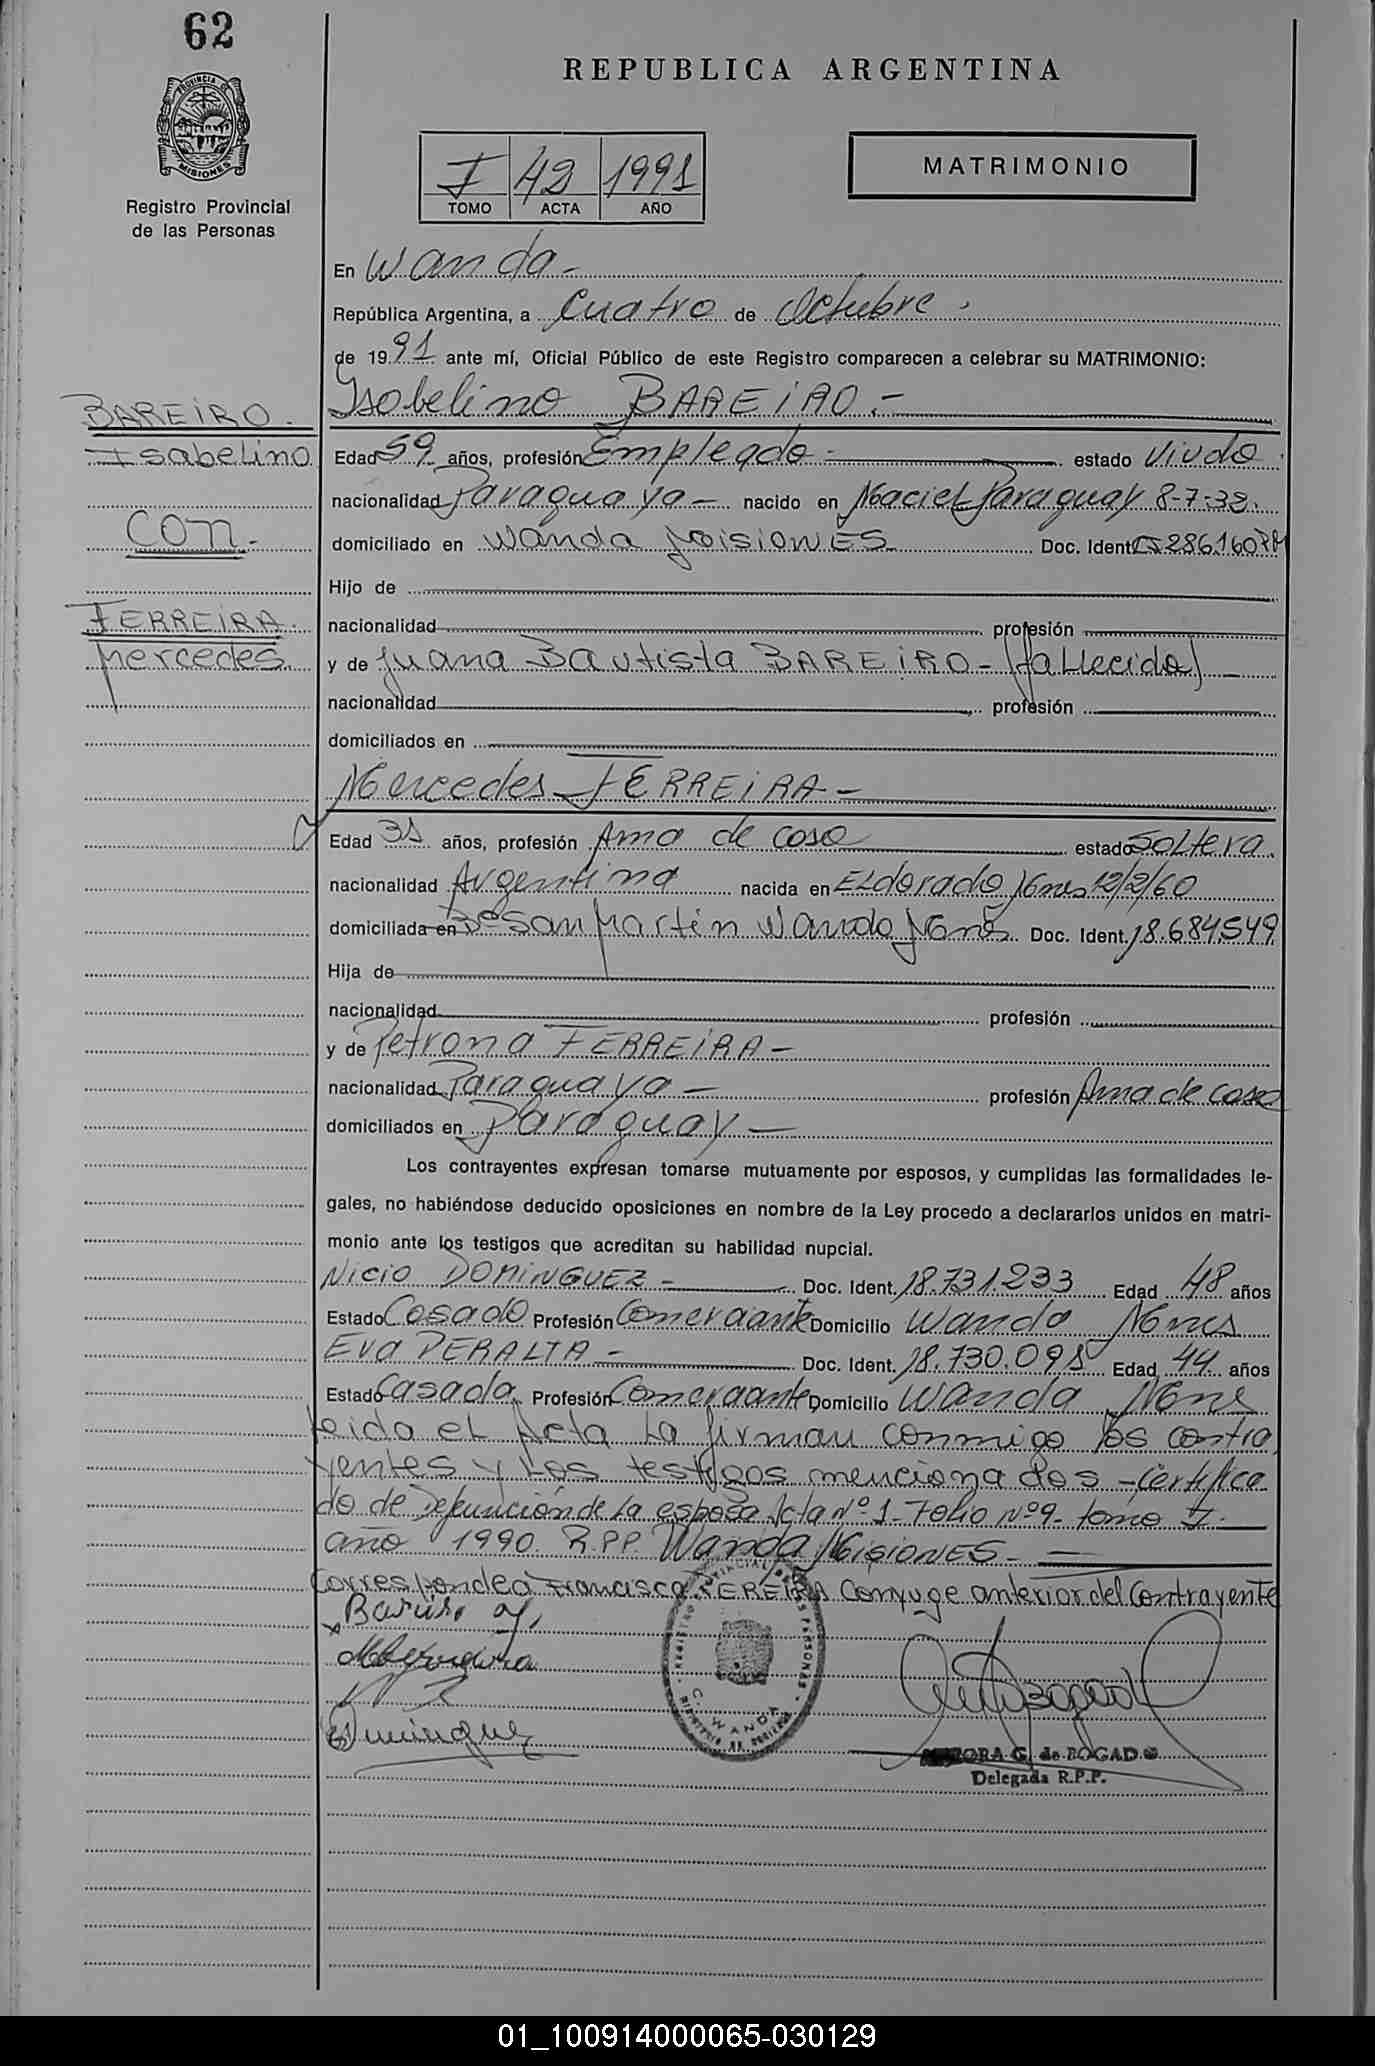 62
REPUBLICA ARGENTINA
PROVINCIA DE MISIONES
Registro Provincial
de las Personas
I 42 1991
TOMO ACTA AÑO
MATRIMONIO
En Wanda-
República Argentina, a Cuatro de Octubre.
de 1991 ante mí, Oficial Público de este Registro comparecen a celebrar su MATRIMONIO:
BAREIRO.
Isabelino
con.
FERREIRA.
Mercedes.
Isabelino BAREIRO.-
Edad 59 años, profesión Empleado- estado Viudo.
nacionalidad Paraguaya- nacido en Maciel Paraguay 8-7-32.
domiciliado en Wanda MISIONES Doc. Ident.
Hijo de
nacionalidad profesión
y de Juana Bautista BAREIRO- (fallecida)-
nacionalidad profesión
domiciliados en
Mercedes FERREIRA-
Edad 31 años, profesión Ama de casa estado Soltera.
nacionalidad Argentina nacida en Eldorado Mnes 12/2/60
domiciliada en Bº San Martin Wanda Mnes Doc. Ident. 18.684.549
Hija de
nacionalidad profesión
y de Petrona FERREIRA-
nacionalidad Paraguaya- profesión Ama de casa
domiciliados en Paraguay-
Los contrayentes expresan tomarse mutuamente por esposos, y cumplidas las formalidades le-
gales, no habiéndose deducido oposiciones en nombre de la Ley procedo a declararlos unidos en matri-
monio ante los testigos que acreditan su habilidad nupcial.
Nicio DOMINGUEZ- Doc. Ident. 18.731.233 Edad 48 años
Estado Casado Profesión Comerciante Domicilio Wanda Mnes
Eva PERALTA- Doc. Ident. 18.730.091 Edad 44 años
Estado Casada Profesión Comerciante Domicilio Wanda Mnes
leida el Acta la firman conmigo los contra
yentes y los testigos mencionados -Certifica
do de Defunción de la esposa Acta Nº 1- Folio Nº 9- tomo I-
año 1990. R.P.P. Wanda MISIONES-
Corresponde a Francisca FEREIRA Conyuge anterior del Contrayente
x Bareiro
Dominguez
WANDA
G. de BOGADO
Delegada R.P.P.
01_100914000065-030129